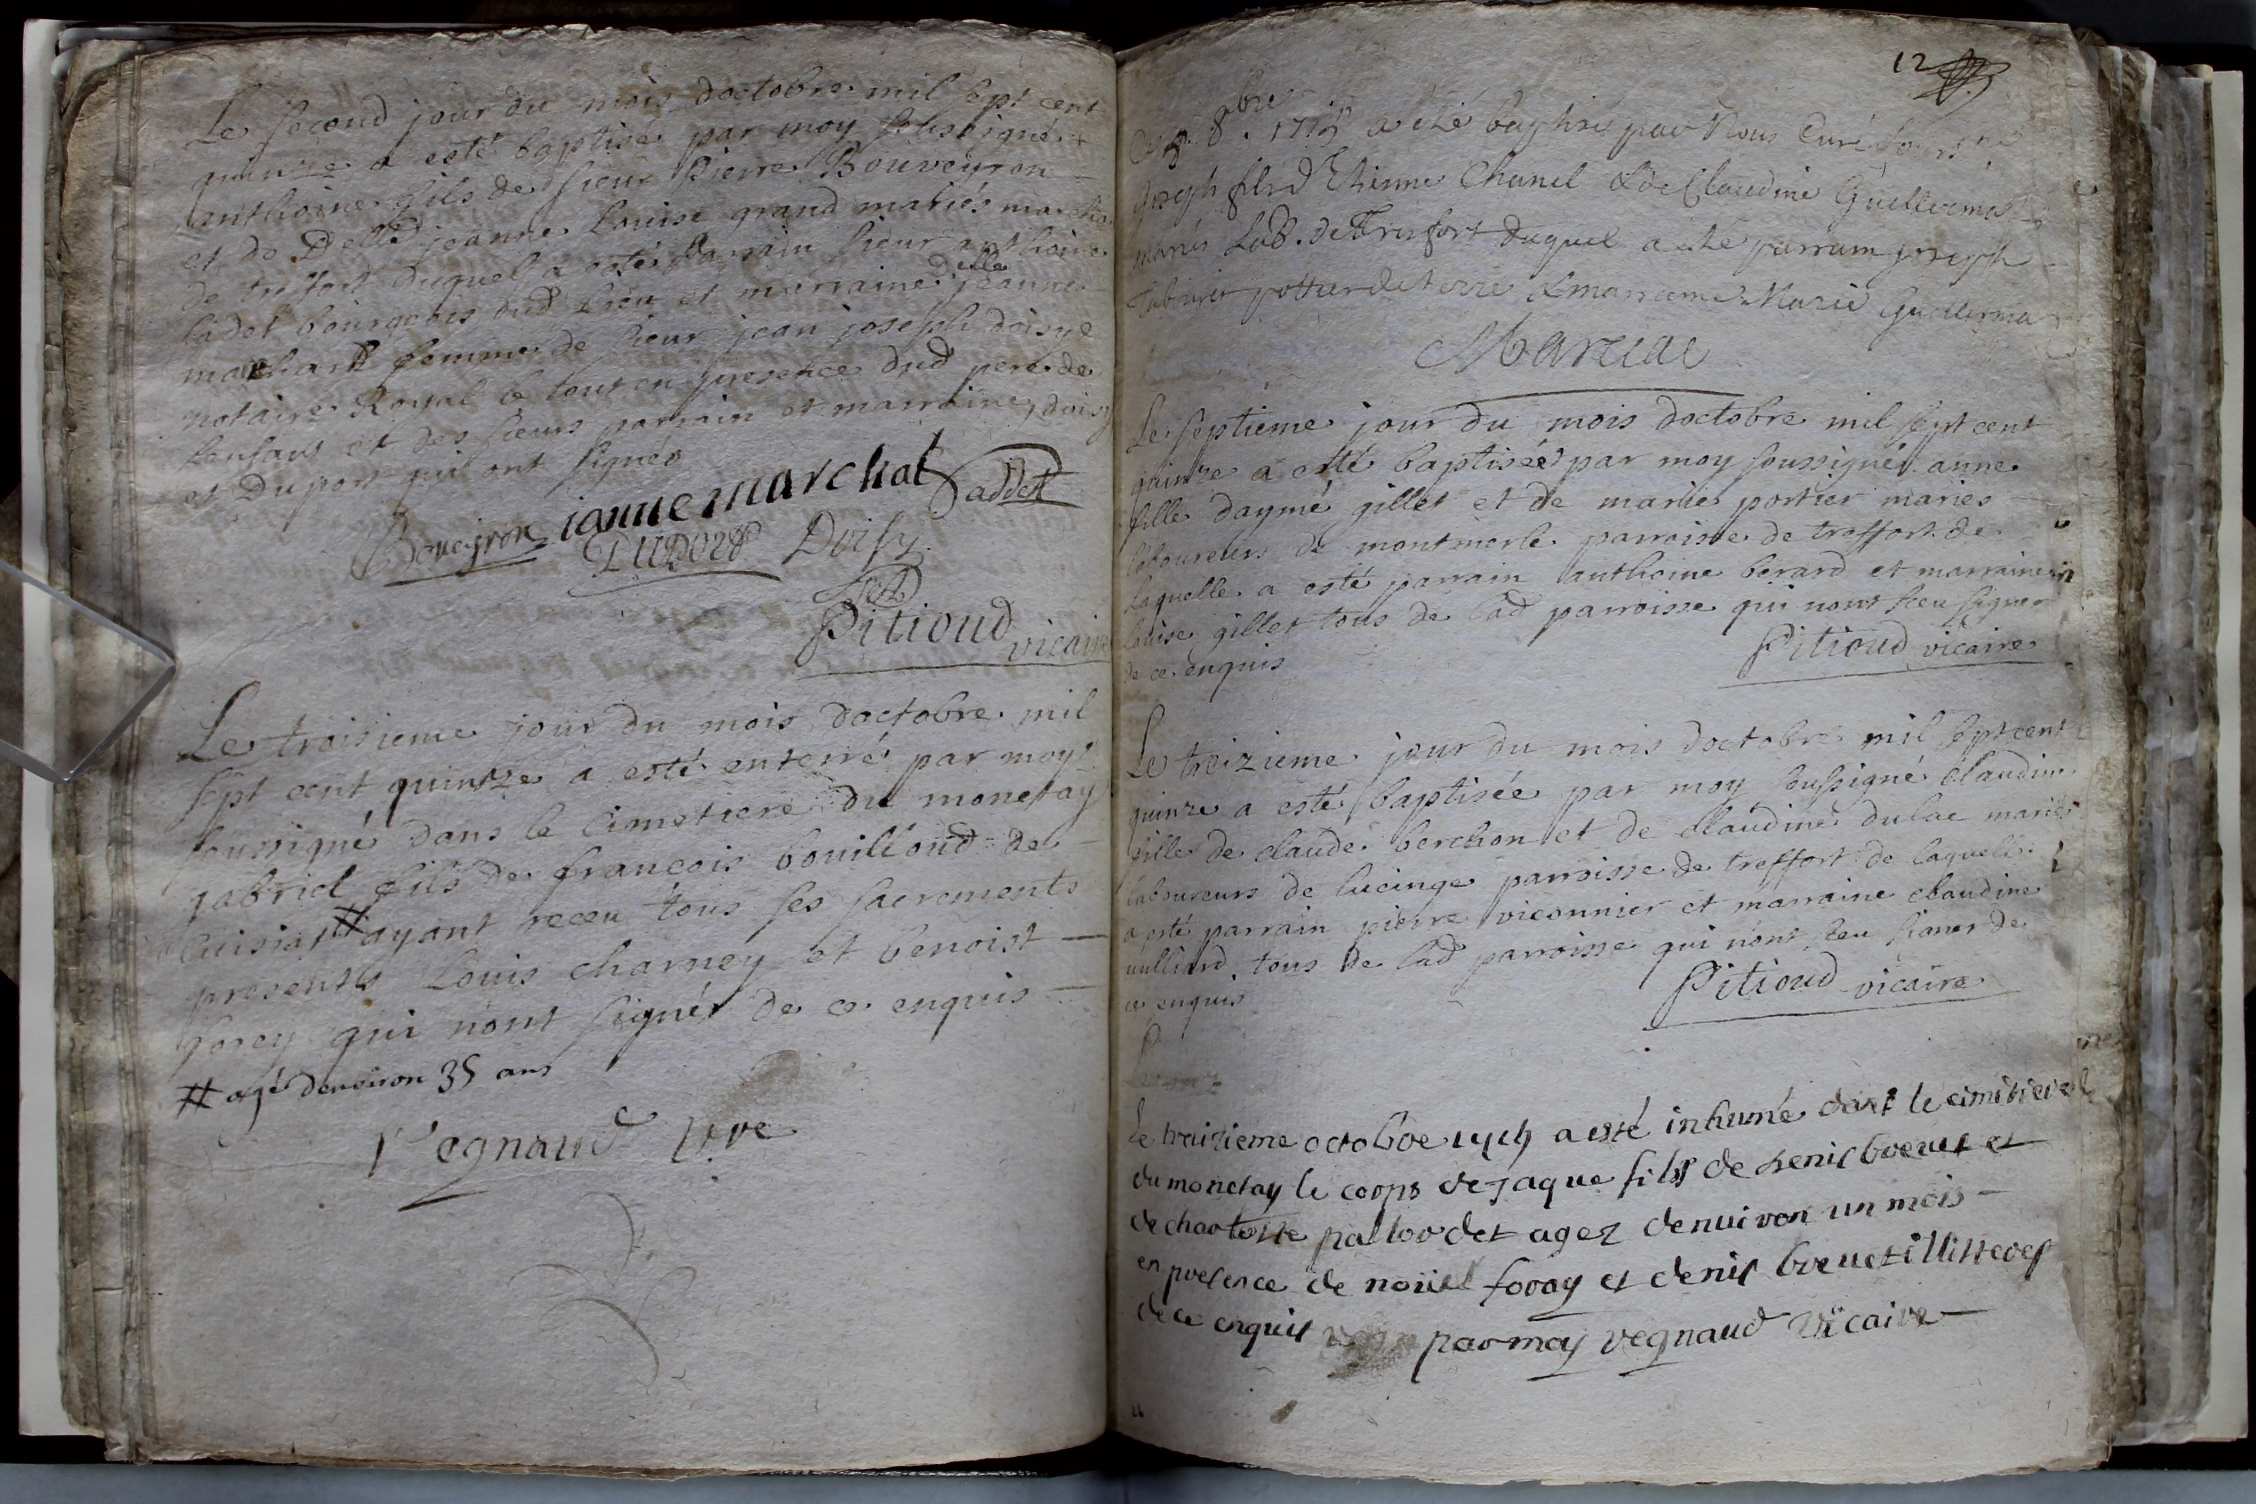 Le second jour du mois doctobre mil sept cent
quinze a esté baptise par moy soussigné
anthoine fils de sieur Pierre Bouveyron
et de Delle jeanne Louise grand mariés marcha
de treffort duquel a esté parrain sieur anthoine
cadet bourgeois dud lieu et marraine delle jeanne
marchant femme de sieur jean joseph doisy
notaire Royal le tout en presence dud pere de
lenfant et des sieurs parrain et marraine, doisy
et Duport qui ont signés
Boveyron ianne marchat Caddet
DUPORT Doisy
Pitioud vicaire
Le troisieme jour du mois doctobre mil
sept cent quinze a esté enterré par moy
soussigné dans le cimetiere du monetay
gabriel fils de francois bouilloud de
Cuisiat # ayant receu tous ses sacrements
presents Louis charney et benoist
forey qui nont signér de ce enquis
# agé denviron 35 ans
regnaud vre
12
8bre 1715 a été baptisé par Nous Curé soussné
Joseph fils d'Etienne Chanel & de Claudine Guillermin
mariés Lab. de Treffort duquel a été parrain joseph
pottier de terre & marraine Marie Guillerma
Le septieme jour du mois doctobre mil sept cent
quinze a esté baptisée par moy soussigné anne
fille daymé gillet et de marie portier maries
laboureurs de montmerle parroisse de treffort de
laquelle a esté parrain anthoine berard et marraine
Louise gillet tous de lad parroisse qui nont sceu signer
de ce enquis
Pitioud vicaire
Le treizieme jour du mois doctobre mil sept cent
quinze a esté baptisée par moy soussigné claudine
fille de claude berchon et de claudine dulac mariés
laboureurs de lucinge parroisse de treffort de laquelle
a esté parrain pierre viconnier et marraine claudine
vulliard tous de lad parroisse qui nont sceu signer de
ce enquis
Pitioud vicaire
Le traizieme octobre 1715 a esté inhumé dans le cimitiere
du monetay le corps de jaque fils de denis brevet et
de charlotte pallordet agez denuiron un mois
en presence de noüel foray et denis brevet illitteres
de ce enquis par moy regnaud vicaire